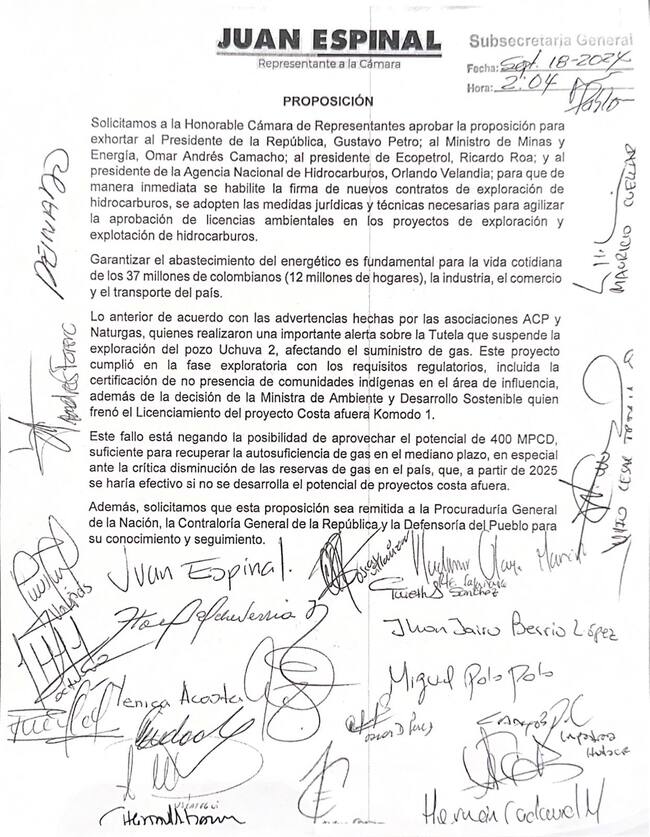 JUAN ESPINAL
Representante a la Cámara
Subsecretaria General
Fecha: Sept. 18-2024
Hora: 2:04
PROPOSICIÓN
Solicitamos a la Honorable Cámara de Representantes aprobar la proposición para
exhortar al Presidente de la República, Gustavo Petro; al Ministro de Minas y
Energía, Omar Andrés Camacho; al presidente de Ecopetrol, Ricardo Roa; y al
presidente de la Agencia Nacional de Hidrocarburos, Orlando Velandia; para que de
manera inmediata se habilite la firma de nuevos contratos de exploración de
hidrocarburos, se adopten las medidas jurídicas y técnicas necesarias para agilizar
la aprobación de licencias ambientales en los proyectos de exploración y
explotación de hidrocarburos.
Garantizar el abastecimiento del energético es fundamental para la vida cotidiana
de los 37 millones de colombianos (12 millones de hogares), la industria, el comercio
y el transporte del país.
Lo anterior de acuerdo con las advertencias hechas por las asociaciones ACP y
Naturgas, quienes realizaron una importante alerta sobre la Tutela que suspende la
exploración del pozo Uchuva 2, afectando el suministro de gas. Este proyecto
cumplió en la fase exploratoria con los requisitos regulatorios, incluida la
certificación de no presencia de comunidades indígenas en el área de influencia,
además de la decisión de la Ministra de Ambiente y Desarrollo Sostenible quien
frenó el Licenciamiento del proyecto Costa afuera Komodo 1.
Este fallo está negando la posibilidad de aprovechar el potencial de 400 MPCD,
suficiente para recuperar la autosuficiencia de gas en el mediano plazo, en especial
ante la crítica disminución de las reservas de gas en el país, que, a partir de 2025
se haría efectivo si no se desarrolla el potencial de proyectos costa afuera.
Además, solicitamos que esta proposición sea remitida a la Procuraduría General
de la Nación, la Contraloría General de la República y la Defensoría del Pueblo para
su conocimiento y seguimiento.
MAURICIO CUELLAR
Juan Espinal.
Sánchez
Echeverria
Jhon Jairo Berrio López
Yenica Acosta
Miguel Polo Polo
Oscar D Perez
Hernán Cadavid M